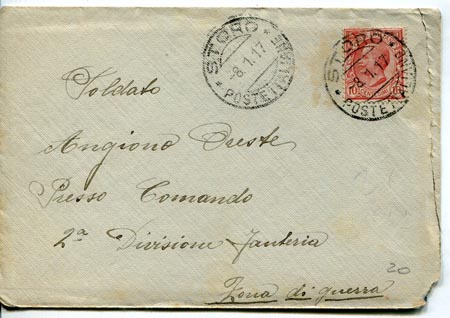 STORO
8.1.17
POSTE ITALIANE
STORO
8.1.17
10
10
Soldato
Angiono Oreste
Presso Comando
2ª Divisione Fanteria
Zona di guerra
20